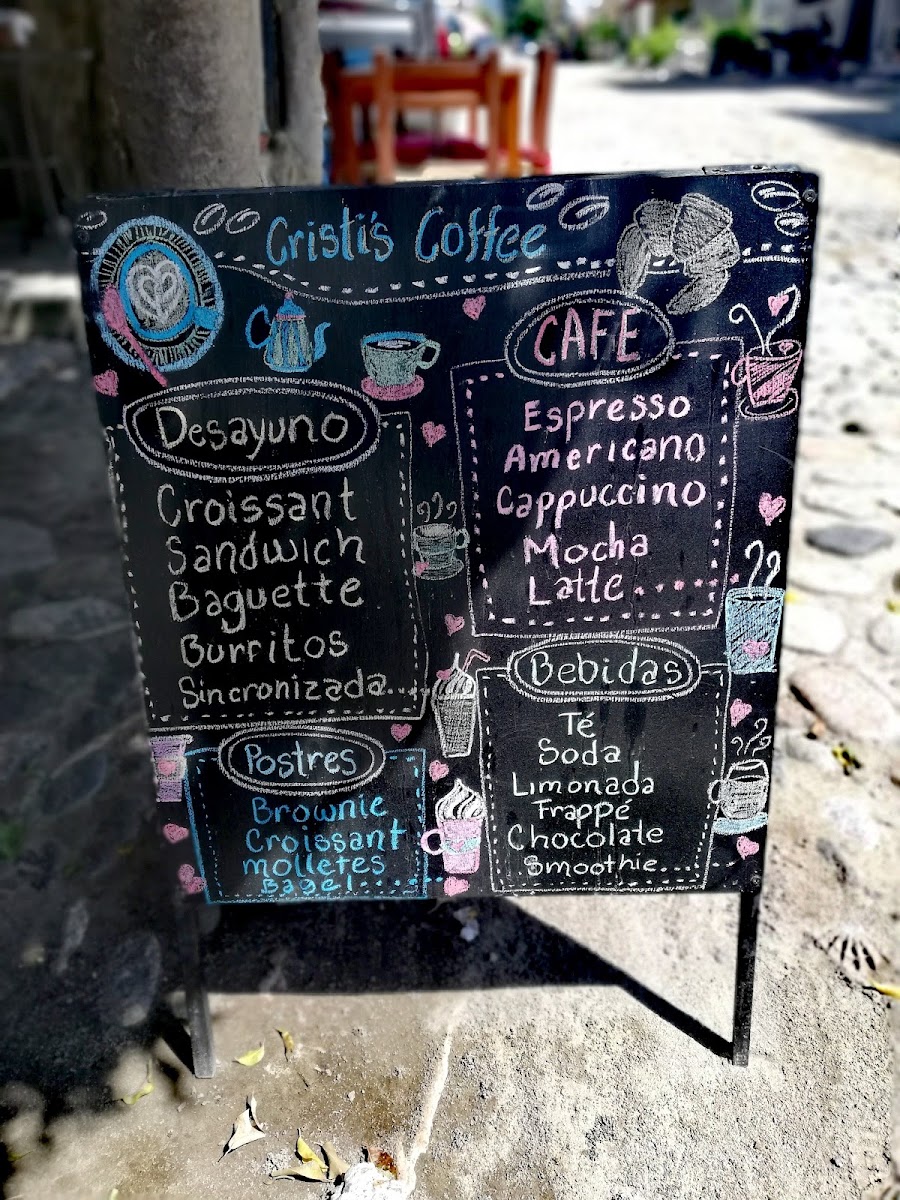 Cristi's Coffee
Desayuno
Croissant
Sandwich
Baguette
Burritos
Sincronizada...
CAFE
Espresso
Americano
Cappuccino
Mocha
Latte......
Postres
Brownie
Croissant
molletes
Bagel......
Bebidas
Té
Soda
Limonada
Frappé
Chocolate
Smoothie......